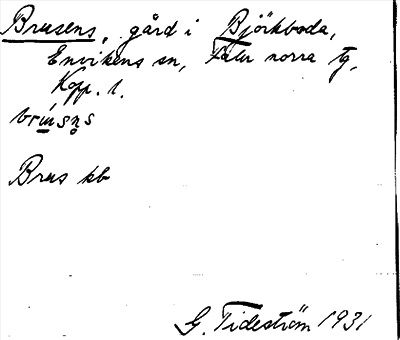 Brusens, gård i Björkboda,
Envikens sn, Falu norra tg,
Kopp. l.
Brus kb
G. Tideström 1931